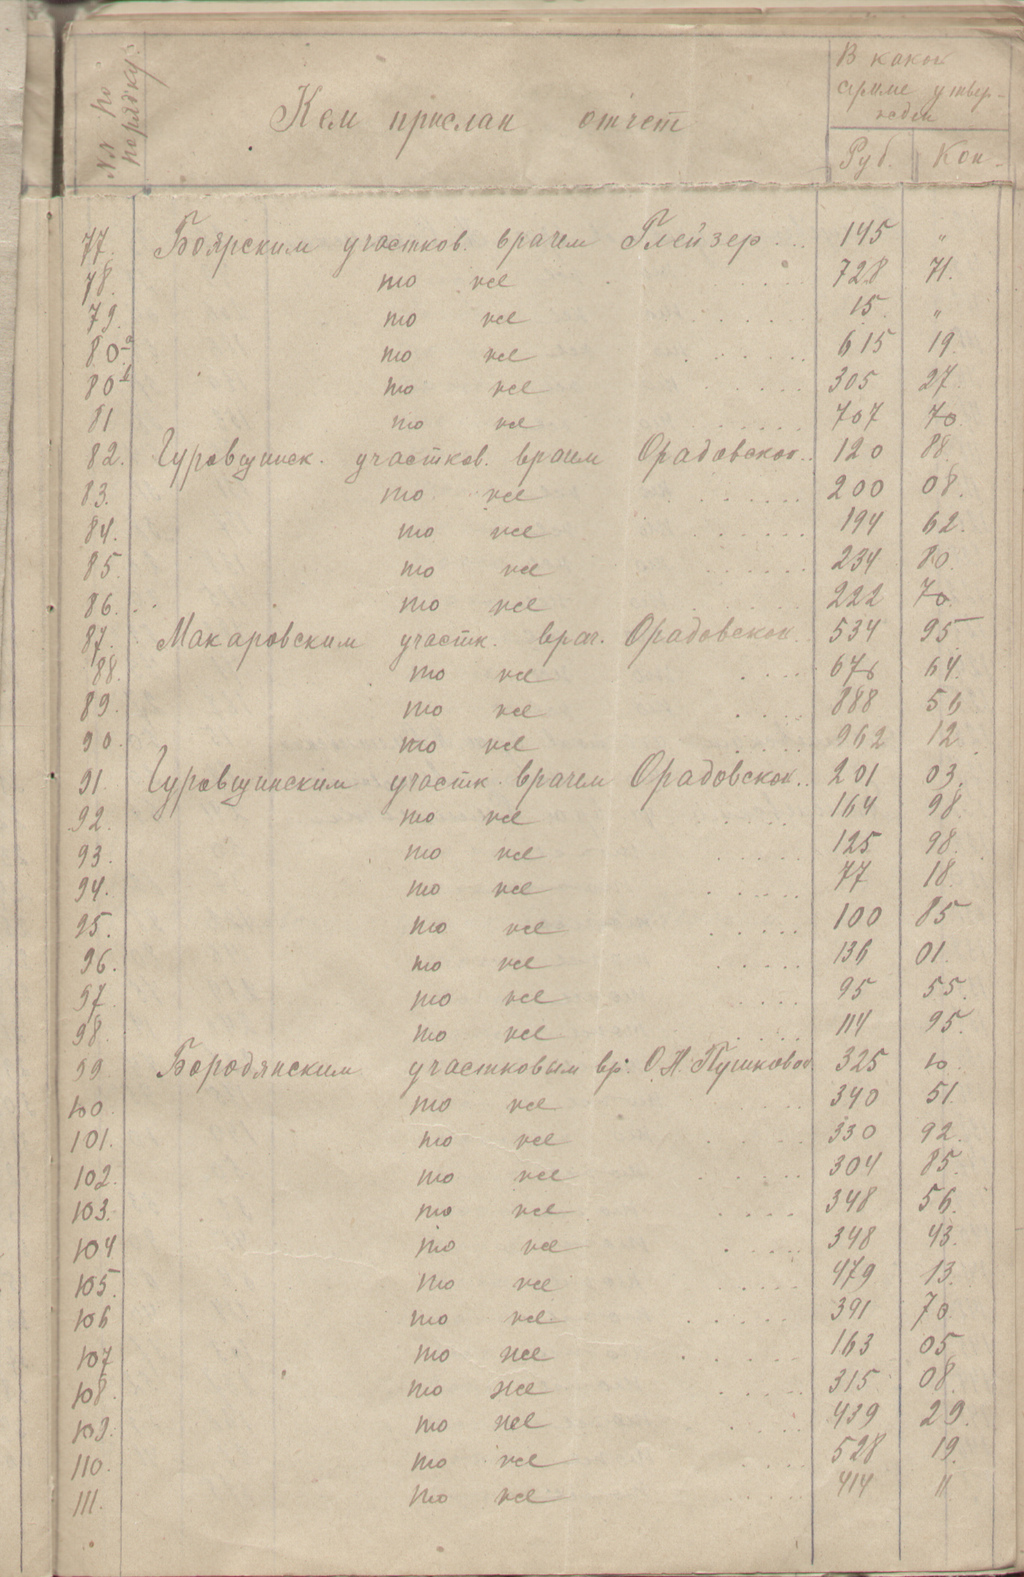 №№ по порядку.
Кем прислан отчет
В какой сумме утвержден
Руб. Коп.
77. Боярским участков. врачем Глейзер... 145 "
78. то же ..... 728 71.
79. то же ..... 15. "
80а то же ...... 615 19.
80б то же ..... 305 27
81 то же ..... 707 70
82. Гуровщинск. участков. врачем Орадовской.. 120 88.
83. то же ....... 200 08.
84. то же ...... 194 62.
85. то же ..... 234 80.
86. то же ..... 222 70
87. Макаровским участк. врач. Орадовской. 534 95
88. то же .... 676 64.
89. то же .... 888 56
90. то же ..... 962 12
91. Гуровщинским участк. врачем Орадовской.. 201 03.
92. то же .... 164 98
93. то же ..... 125 98.
94. то же ...... 77 18.
95. то же ..... 100 85
96. то же ..... 136 01.
97. то же .... 95 55.
98. то же ..... 114 95.
99 Бородянским участковым вр. О.Н. Пушковой 325 10
100 то же ... 340 51.
101. то же .... 330 92.
102. то же ..... 304 85.
103. то же .... 348 56.
104 то же ..... 348 43.
105. то же .... 479 13.
106 то же ..... 391 70.
107 то же ..... 163 05
108. то же ..... 315 08.
109. то же ... 439 29.
110. то же .... 528 19.
111. то же .... 414 11